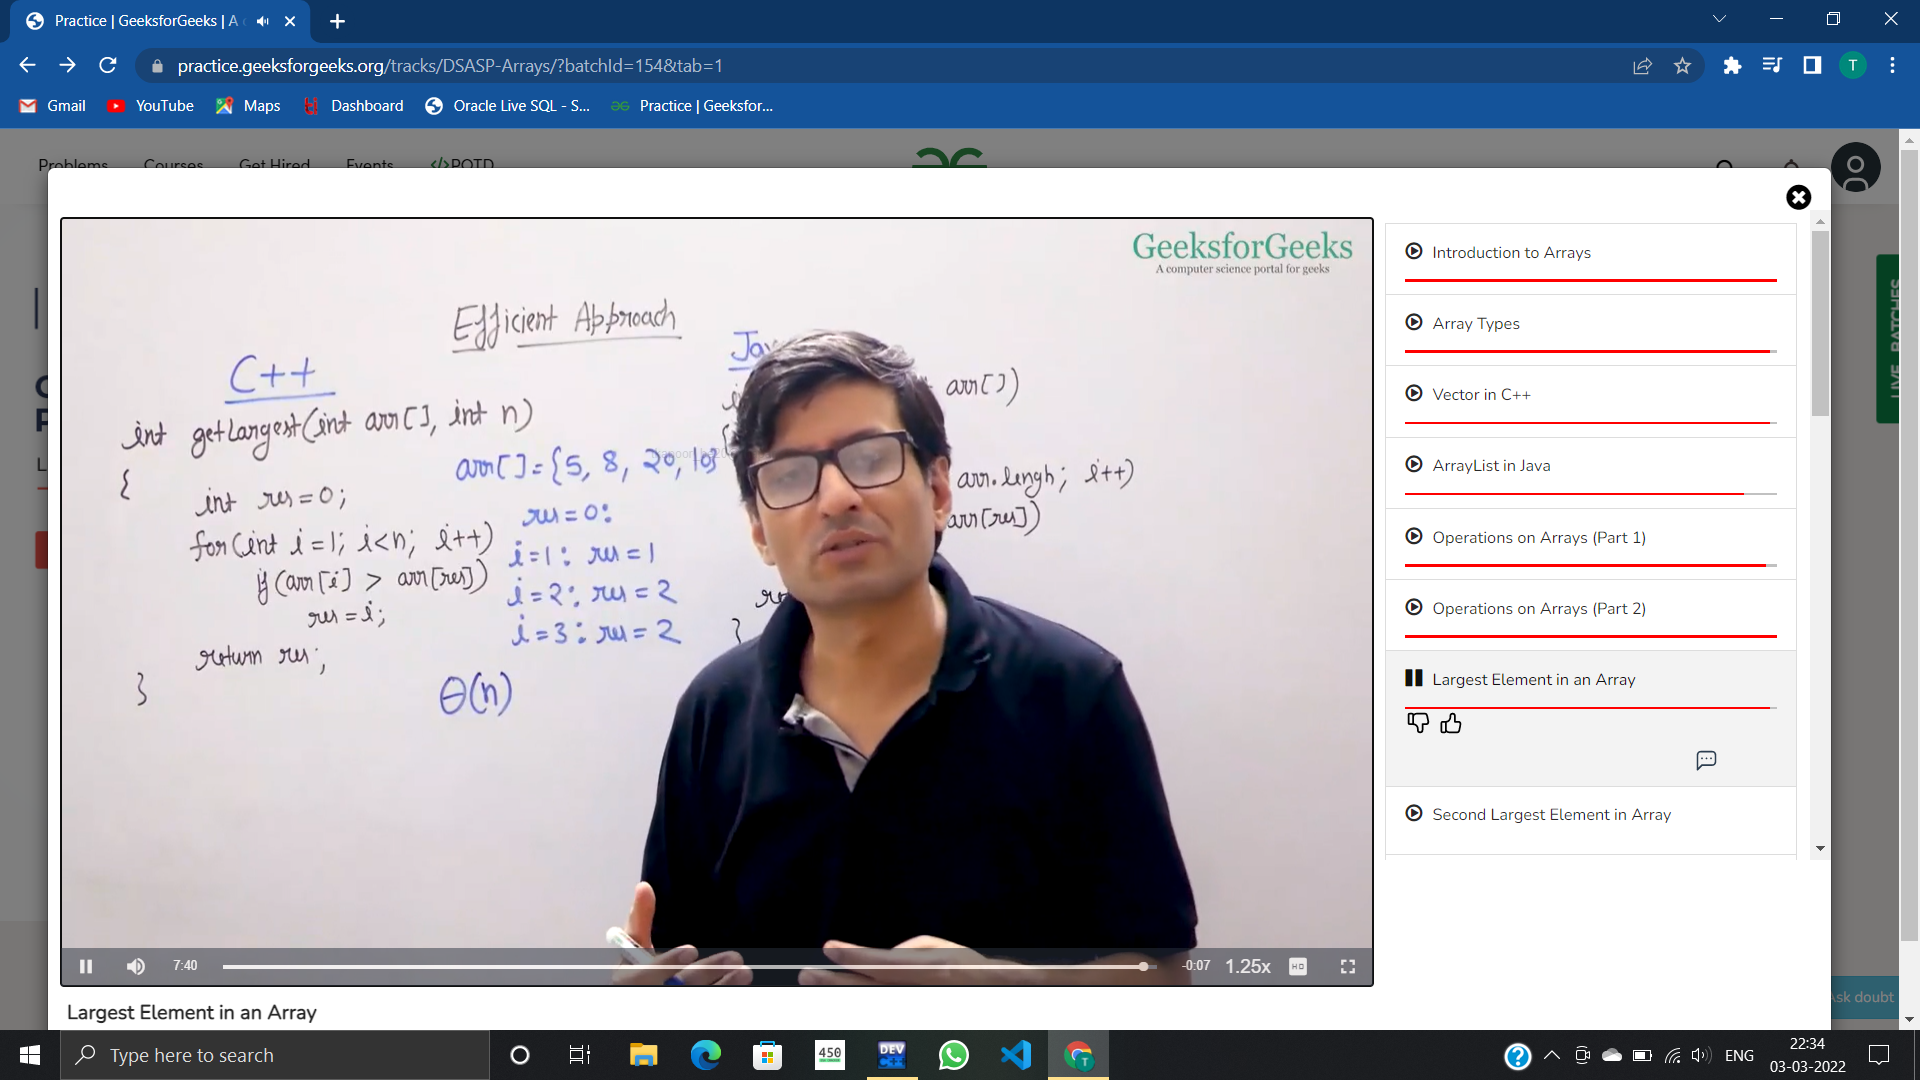 Practice | GeeksforGeeks | A
practice.geeksforgeeks.org/tracks/DSASP-Arrays/?batchId=154&tab=1
T
Gmail
YouTube
Maps
Dashboard
Oracle Live SQL - S...
Practice | Geeksfor...
Problems
Courses
Get Hired
Events
</>POTD
GeeksforGeeks
A computer science portal for geeks
Efficient Approach
C++
int getLargest(int arr[], int n)
{
int res=0;
for(int i=1; i<n; i++)
if(arr[i] > arr[res])
res=i;
return res;
}
arr[]={5, 8, 20, 10}
res=0:
i=1: res=1
i=2: res=2
i=3: res=2
θ(n)
Jav
arr[])
{
arr.lengh; i++)
arr[res])
}
7:40
-0:07
1.25x
HD
Introduction to Arrays
Array Types
Vector in C++
ArrayList in Java
Operations on Arrays (Part 1)
Operations on Arrays (Part 2)
Largest Element in an Array
Second Largest Element in Array
LIVE BATCHES
Ask doubt
Largest Element in an Array
Type here to search
450
DEV
C++
T
ENG
22:34
03-03-2022